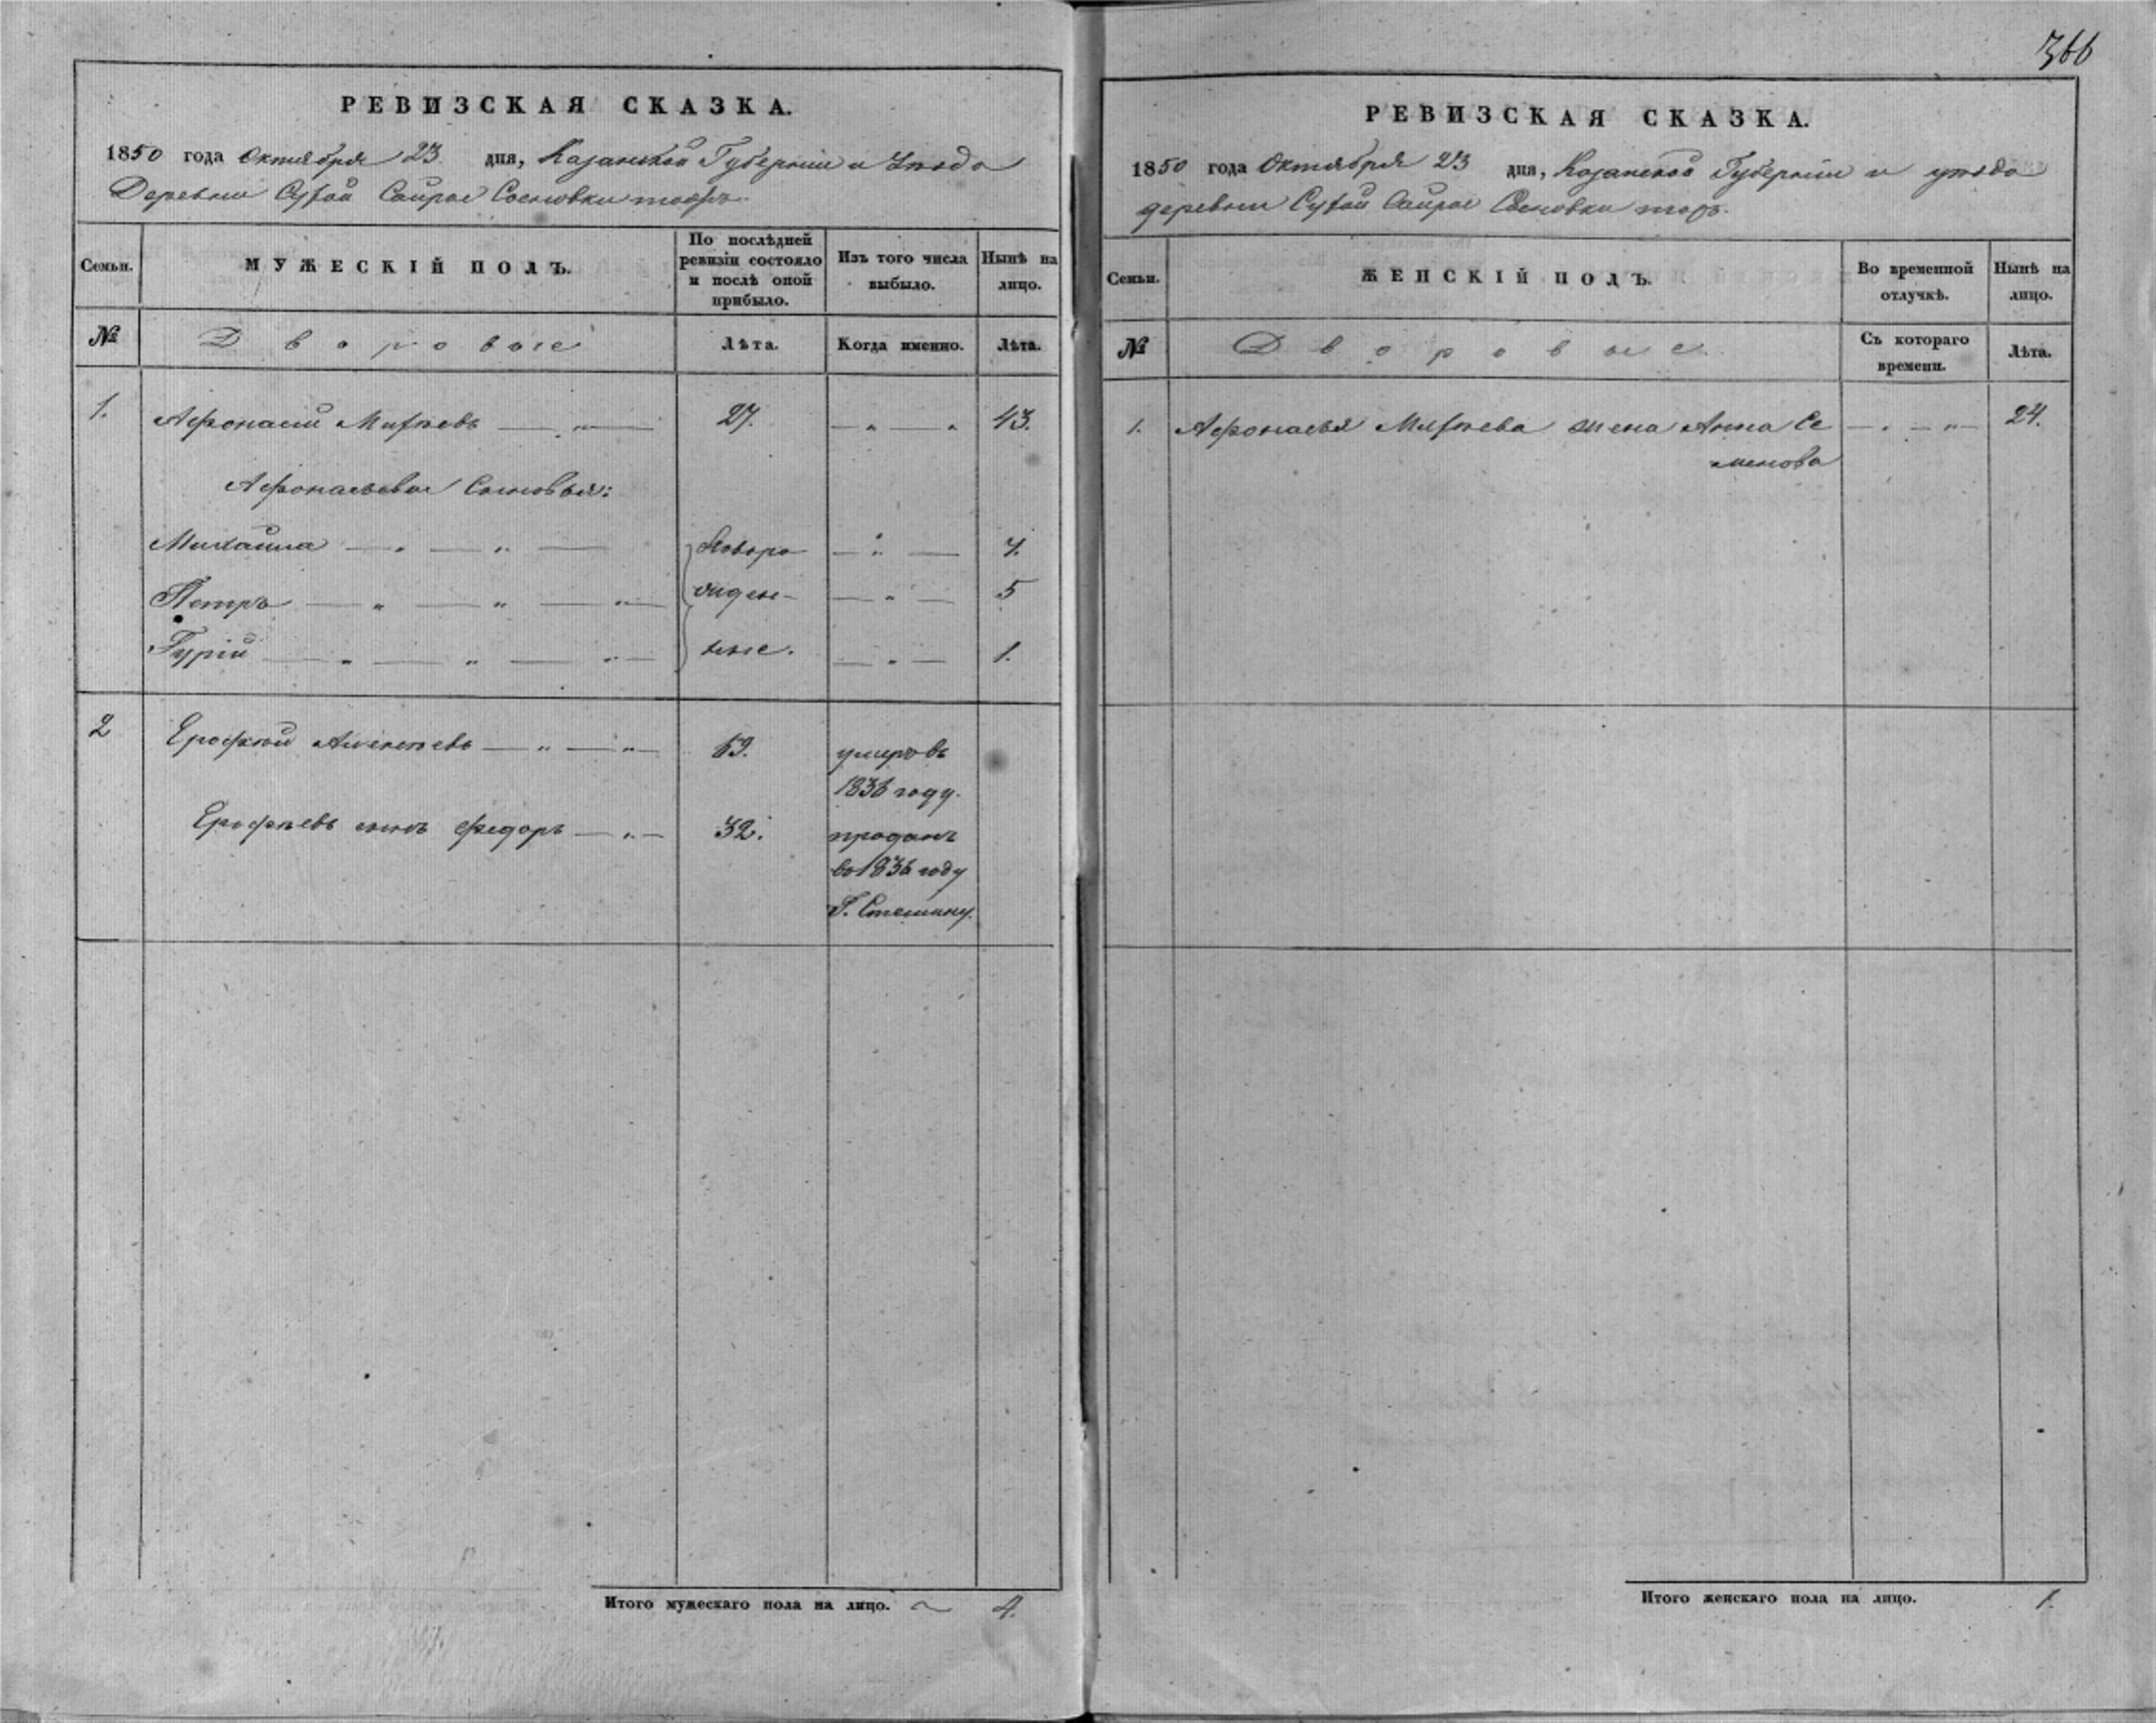 366
РЕВИЗСКАЯ СКАЗКА.
1850 года Октября 23 дня, Казанской Губерніи и Уѣзда
Деревни Сухой Сосновки тожъ.
Семьи.
МУЖЕСКІЙ ПОЛЪ.
По послѣдней ревизіи состояло и послѣ оной прибыло.
Изъ того числа выбыло.
Нынѣ на лицо.
№
Дворовые
Лѣта.
Когда именно.
Лѣта.
1. Афонасій 27. — „ — „ 43.
Афонасьевы Сыновья:
Михаила — „ — „ — Новоро — „ — 7.
Петръ — „ — „ — „ — жден- — „ — 5
Гурій — „ — „ — „ — ные. — „ — 1.
2 Ерофѣй Алексѣевъ — „ — „ — 69. умеръ въ
1836 году.
Ерофѣевъ сынъ Федоръ — „ — 32. проданъ
во 1836 году
Г.
Итого мужескаго пола на лицо. 4.
РЕВИЗСКАЯ СКАЗКА.
1850 года Октября 23 дня, Казанской Губерніи и уѣзда
деревни Сухой Сосновки тожъ.
Семьи.
ЖЕНСКІЙ ПОЛЪ.
Во временной отлучкѣ.
Нынѣ на лицо.
№
Дворовые
Съ котораго времени.
Лѣта.
1. Афонасья жена Анна Се — „ — „ — 24.
менова
Итого женскаго пола на лицо. 1.